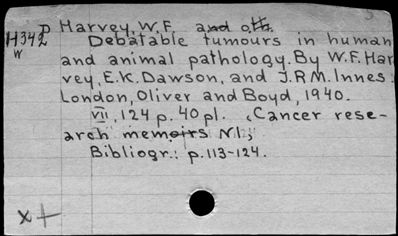 P Harvey, W.F. and oth.
H342 Debatable tumours in human
W and animal pathology. By W.F. Har
vey, E.K. Dawson, and J.R.M. Innes.
London, Oliver and Boyd, 1940.
VII, 124 p. 40 pl. (Cancer rese-
arch memoirs N.I.;
Bibliogr.: p. 113-124.
x+